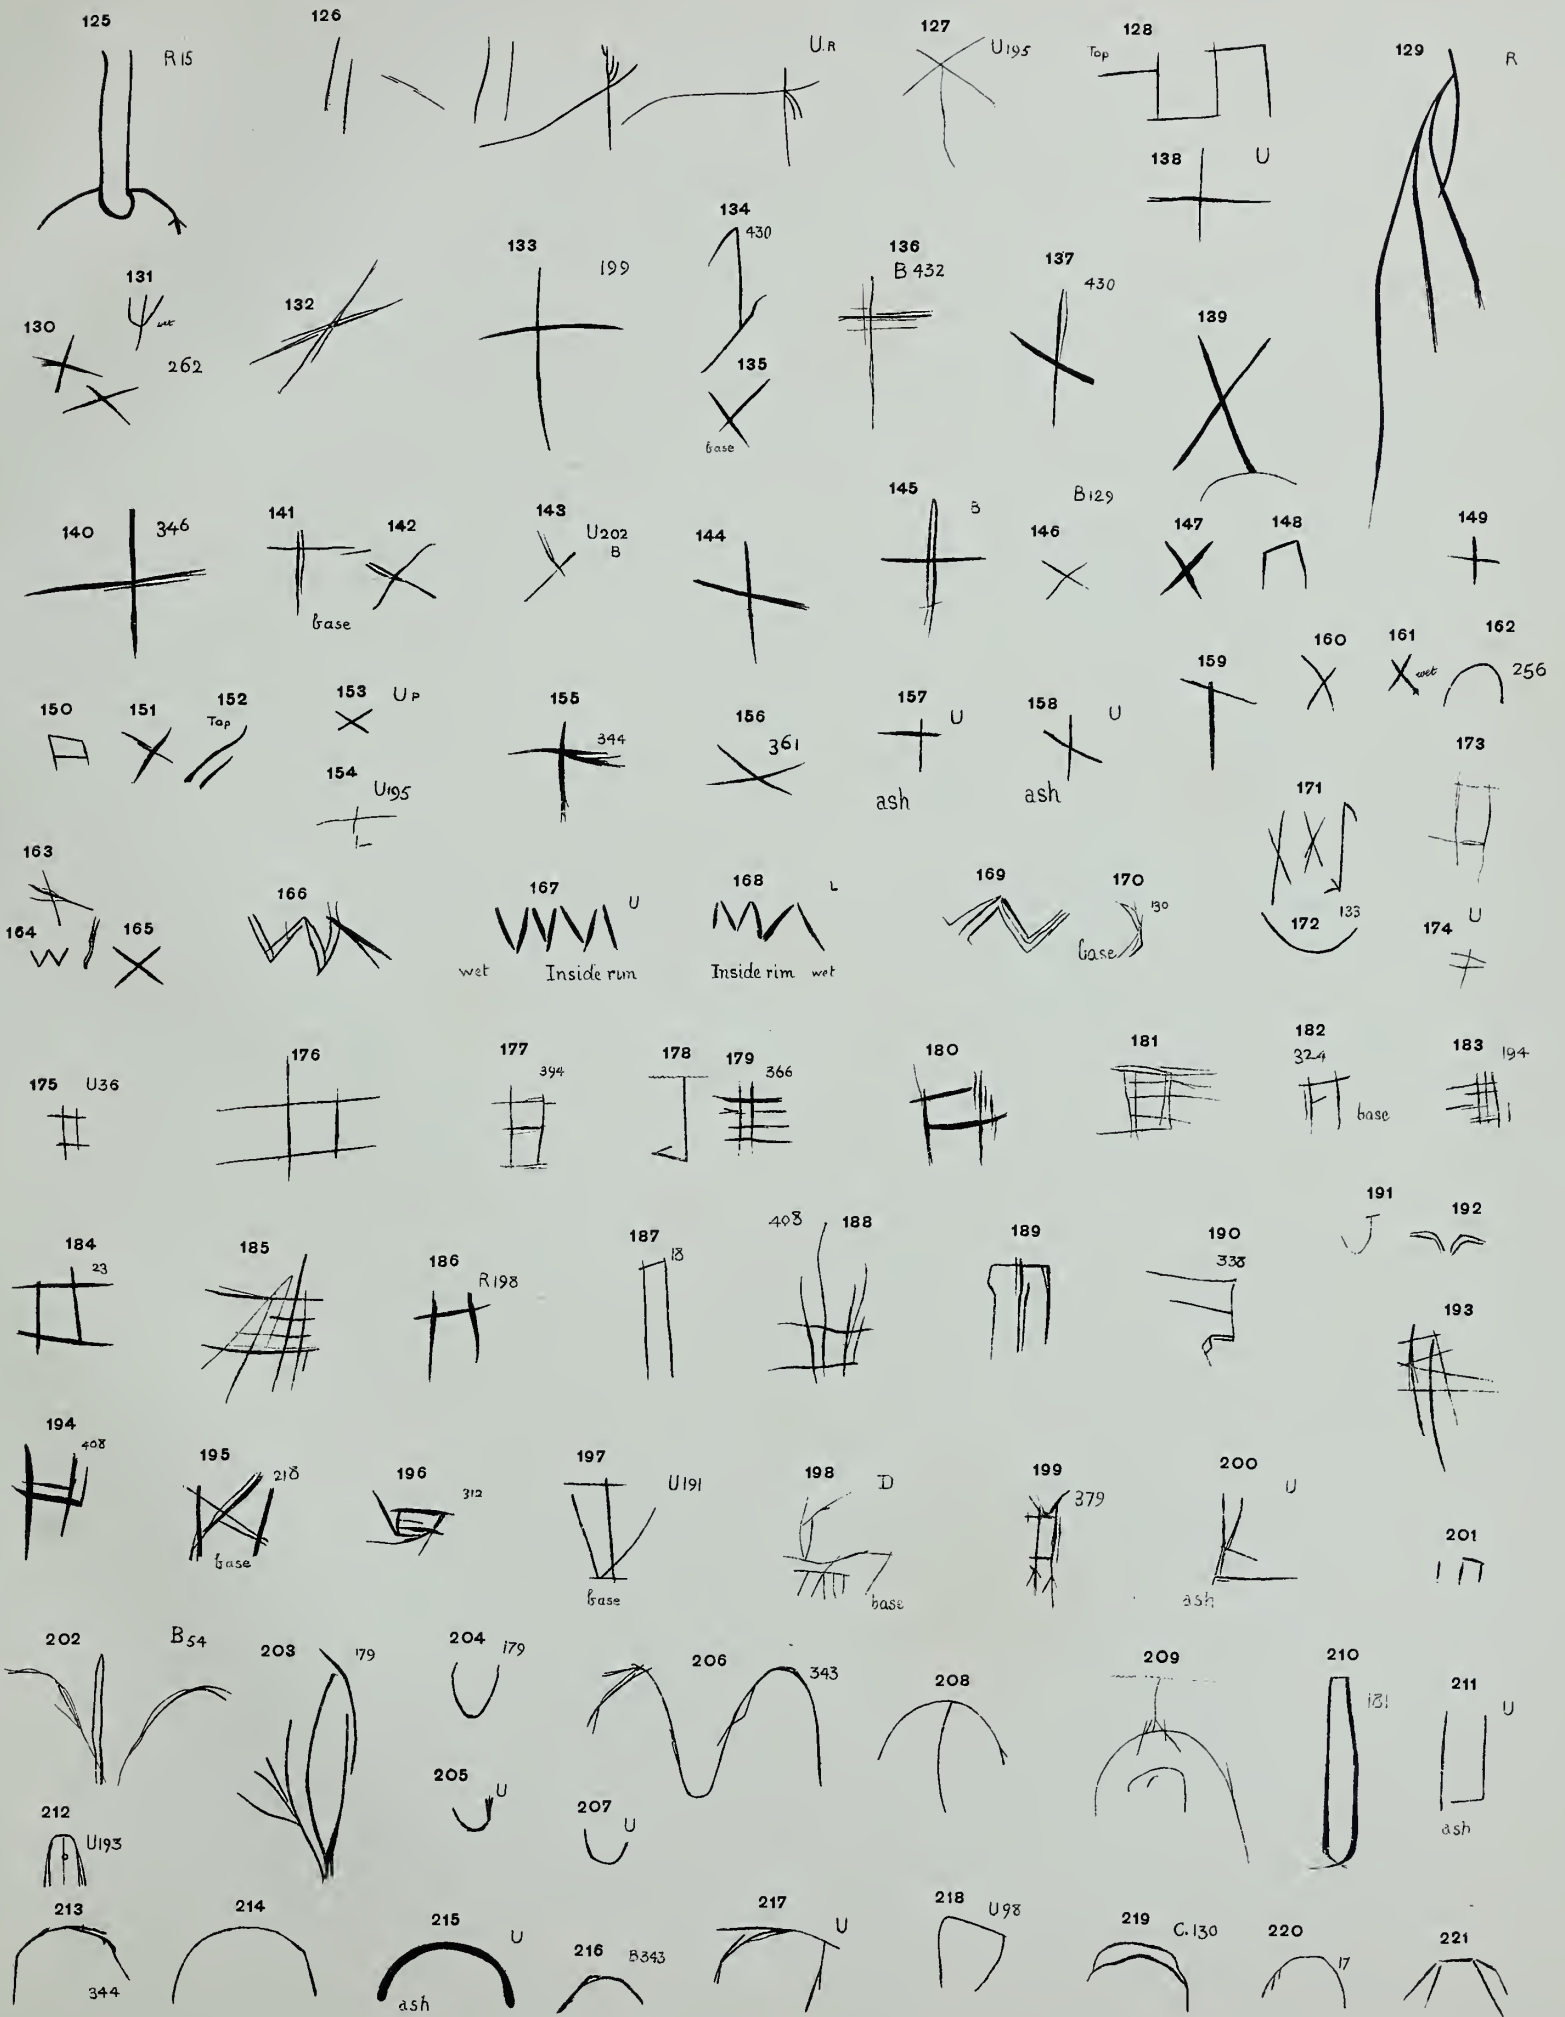 125 R 15
126 U.R
127 U195
128 Top
129 R
138 U
134 430
133 199
136 B 432
137 430
131 wet
130 262
132
135 base
139
140 346
141 base
142
143 U202 B
144
145 B
146 B129
147
148
149
150
151
152 Top
153 UP
154 U195 L
155 344
156 361
157 U ash
158 U ash
159
160
161 wet
162 256
163
164
165
166
167 U
wet Inside rim
168 L
Inside rim wet
169
170 130
base
171 133
172
173
174 U
175 U36
176
177 394
178
179 366
180
181
182
324
base
183 194
184 23
185
186 R198
187 18
188 408
189
190
338
191
192
193
194 408
195 218
base
196 312
197 U191
base
198 D
base
199 379
200 U
ash
201
202 B54
203 179
204 179
205 U
206 343
207 U
208
209
210 181
211 U
ash
212 U193
213
344
214
215 U
ash
216 B343
217 U
218 U98
219 C.130
220 17
221